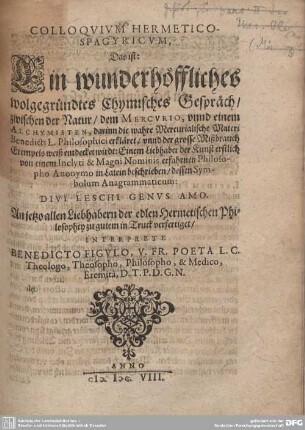 COLLOQVIVM HERMETICO-
SPAGYRICVM,
Das ist:
Ein wunderhöffliches
wolgegründtes Chymisches Gespräch/
zwischen der Natur/ dem MERCVRIO, vnnd einem
ALCHYMISTEN, darinn die wahre Mercurialische Materi
Benedicti L. Philosophici erkläret/ vnnd der grosse Mißbrauch
weiß entdecket wirdt: Einem Liebhaber der Kunst erstlich
von einem Inclyti & Magni Nominis erfahrnen Philoso-
pho Anonymo in Latein beschrieben/ dessen Sym-
bolum Anagrammaticum:
DIVI LESCHI GENVS AMO.
An jetzo allen Liebhabern der edlen Hermetischen Phi-
losophey zu gutem in Truck verfertiget/
INTERPRETE
BENEDICTO FIGVLO, V. FR. POETA L. C.
Theologo, Theosopho, Philosopho, & Medico,
Eremita, D. T. P. D. G. N.
ANNO
VIII.